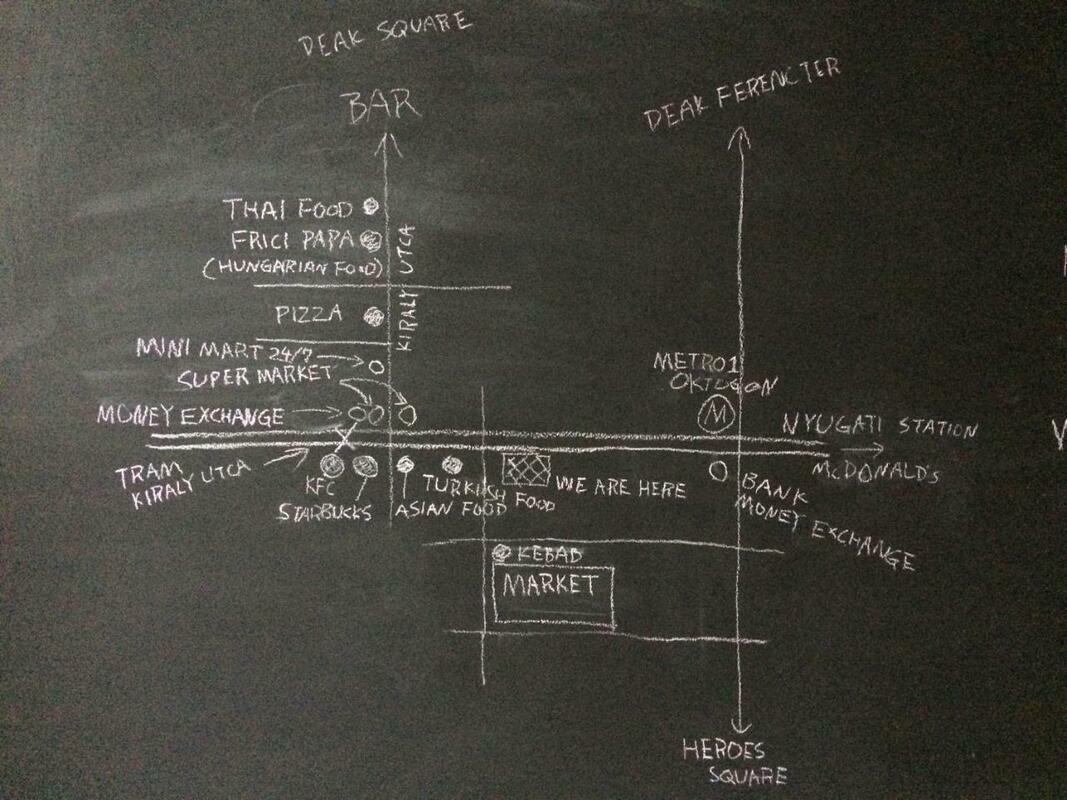 DEAK SQUARE
BAR
DEAK FERENCTER
THAI FOOD
FRICI PAPA
(HUNGARIAN FOOD)
KIRALY UTCA
PIZZA
MINI MART 24/7
SUPER MARKET
MONEY EXCHANGE
METRO1
OKTOGON
M
NYUGATI STATION
McDONALD'S
TRAM
KIRALY UTCA
KFC
STARBUCKS
ASIAN FOOD
TURKISH
FOOD
WE ARE HERE
BANK
MONEY EXCHANGE
KEBAB
MARKET
HEROES
SQUARE